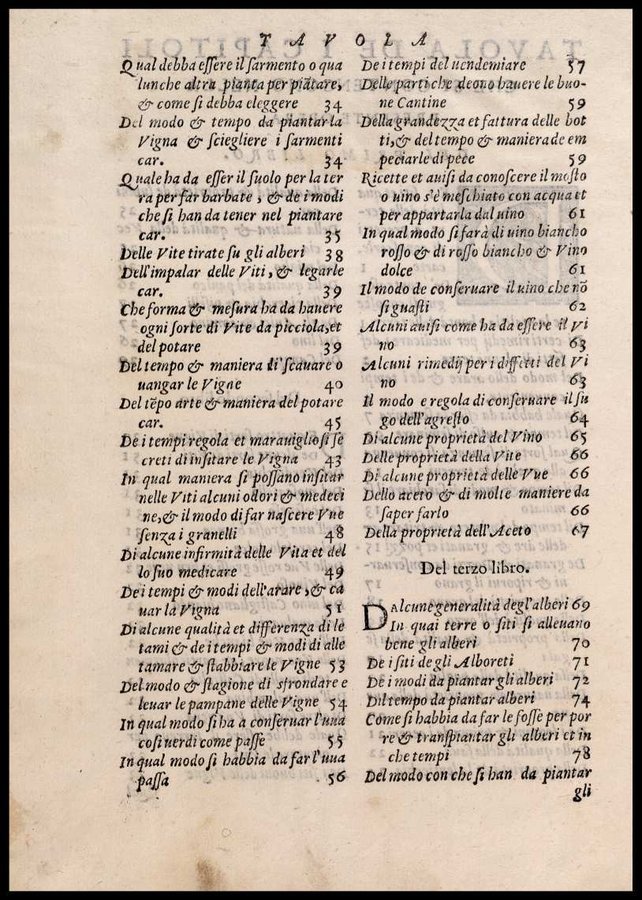 TAVOLA
Qual debba essere il sarmento o qua
lunche altra pianta per piãtare,
& come si debba eleggere 34
Del modo & tempo da piantar la
Vigna & sciegliere i sarmenti
car. 34
Quale ha da esser il suolo per la ter
ra per far barbate, & de i modi
che si han da tener nel piantare
car. 35
Delle Vite tirate su gli alberi 38
Dell'impalar delle Viti, & legarle
car. 39
Che forma & mesura ha da hauere
ogni sorte di Vite da picciola, et
del potare 39
Del tempo & maniera di scauare o
uangar le Vigne 40
Del tẽpo arte & maniera del potare
car. 45
De i tempi regola et marauigliosi se
creti di insitare le Vigna 43
In qual maniera si possano insitar
nelle Viti alcuni odori & medeci
ne, & il modo di far nascere Vue
senza i granelli 48
Di alcune infirmità delle Vita et del
lo suo medicare 49
De i tempi & modi dell'arare, & ca
uar la Vigna 51
Di alcune qualità et differenza di le
tami & de i tempi & modi di alle
tamare & stabbiare le Vigne 53
Del modo & stagione di sfrondare e
leuar le pampane delle Vigne 54
In qual modo si ha a conseruar l'uua
cosi uerdi come passe 55
In qual modo si habbia da far l'uua
passa 56
De i tempi del uendemiare 57
Delle parti che deono hauere le buo-
ne Cantine 59
Della grandezza et fattura delle bot
ti, & del tempo & maniera de em
peciarle di pece 59
Ricette et auisi da conoscere il mosto
o uino s'è meschiato con acqua et
per appartarla dal uino 61
In qual modo si farà di uino biancho
rosso & di rosso biancho & Vino
dolce 61
Il modo de conseruare il uino che nõ
si guasti 62
Alcuni auisi come ha da essere il Vi
no 63
Alcuni rimedij per i diffetti del Vi
no 63
Il modo e regola di conseruare il su
go dell'agresto 64
Di alcune proprietà del Vino 65
Delle proprietà della Vite 66
Di alcune proprietà delle Vue 66
Dello aceto & di molte maniere da
saper farlo 66
Della proprietà dell'Aceto 67
Del terzo libro.
DAlcune generalità degl'alberi 69
In quai terre o siti si alleuano
bene gli alberi 70
De i siti de gli Alboreti 71
De i modi da piantar gli alberi 72
Dil tempo da piantar alberi 74
Come si habbia da far le fosse per por
re & transpiantar gli alberi et in
che tempi 78
Del modo con che si han da piantar
gli